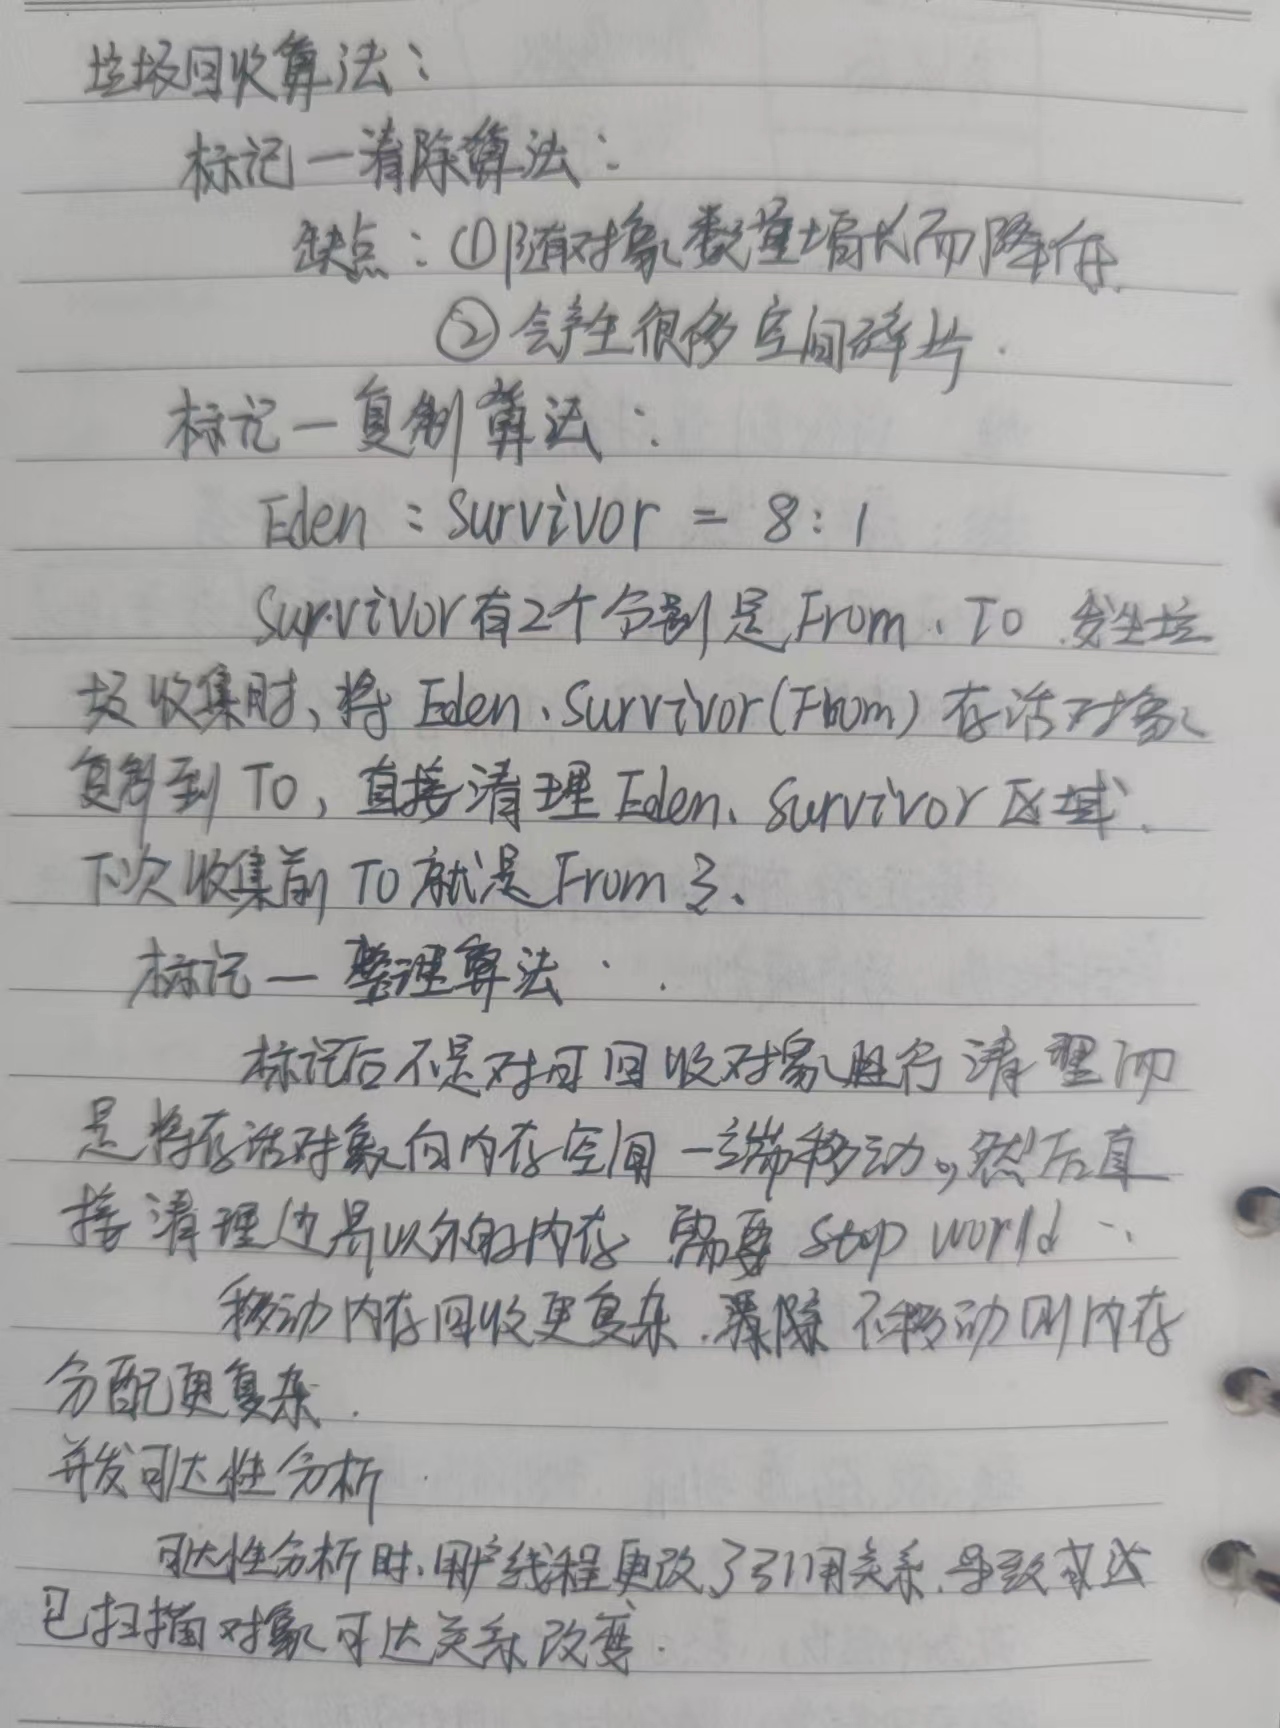 垃圾回收算法：
标记—清除算法：
缺点：①随对象数量增长而降低.
②会产生很多空间碎片.
标记—复制算法：
Eden：Survivor = 8:1
Survivor有2个分别是From、To.发生垃
圾收集时、将Eden、Survivor(From)存活对象
复制到To，直接清理Eden、Survivor区域.
下次收集前To就是From了、
标记—整理算法.
标记后不是对可回收对象进行清理而
是将存活对象向内存空间一端移动。，然后直
接清理边界以外的内存 需要 Stop world
移动内存回收更复杂. 不移动则内存
分配更复杂.
并发可达性分析.
可达性分析时、用户线程更改了引用关系、导致
已扫描对象可达关系改变.